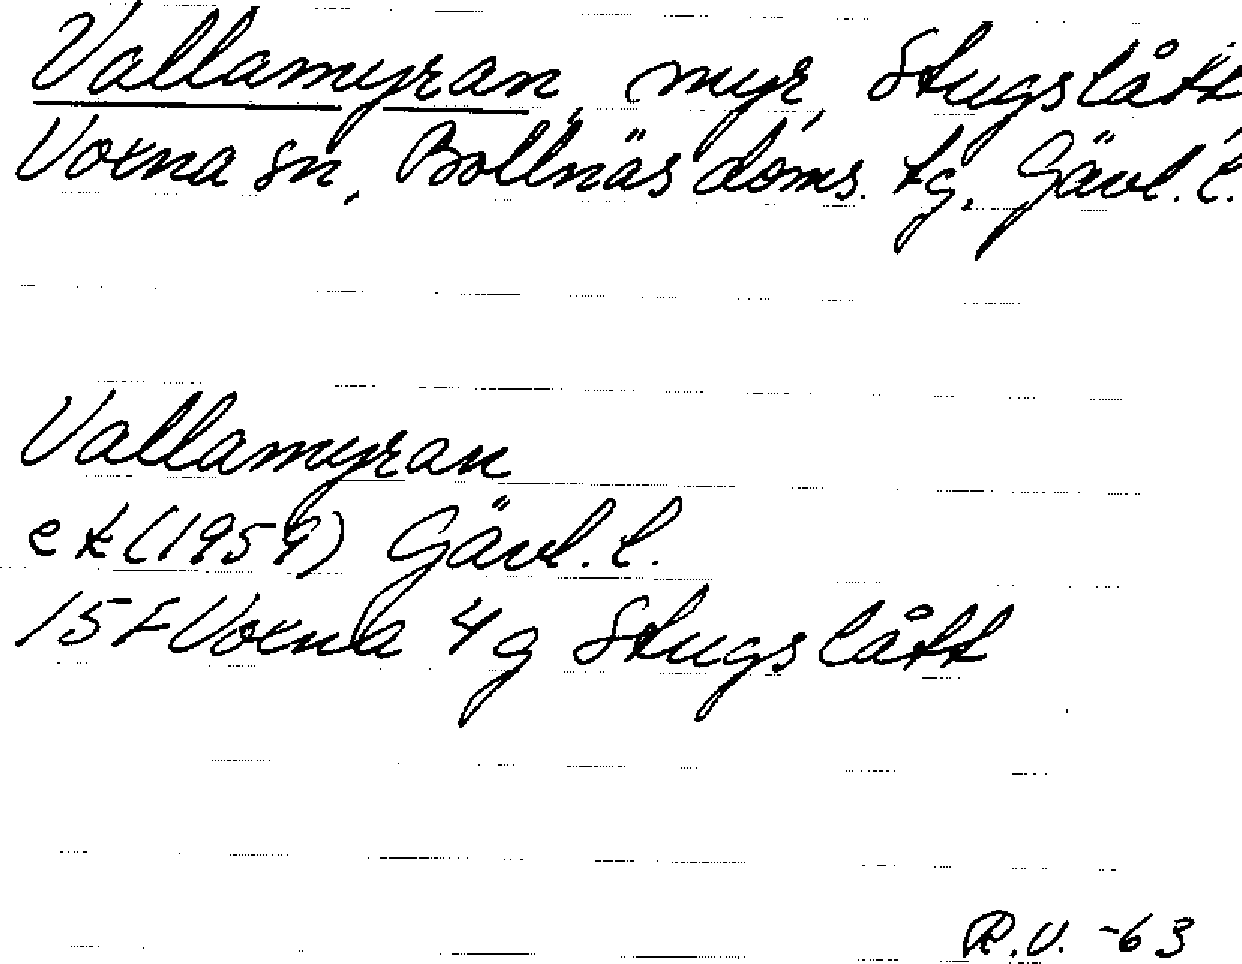 Vallamyran, myr, Stugslått,
Voxna sn, Bollnäs doms. tg, Gävl. l.
Vallamyran
ek (1959) Gävl. l.
15F Voxna 4g Stugslått
R.V. -63